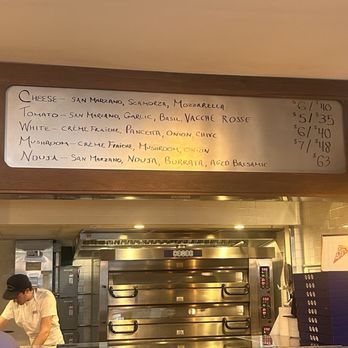 CHEESE — SAN MARZANO, SCAMORZA, MOZZARELLA $6/$40
TOMATO — SAN MARZANO, GARLIC, BASIL, VACCHE ROSSE $5/$35
WHITE — CRÈME FRAÎCHE, PANCETTA, ONION, CHIVE $6/$40
MUSHROOM — CRÈME FRAÎCHE, MUSHROOM, ONION $7/$48
NDUJA — SAN MARZANO, NDUJA, BURRATA, AGED BALSAMIC $63